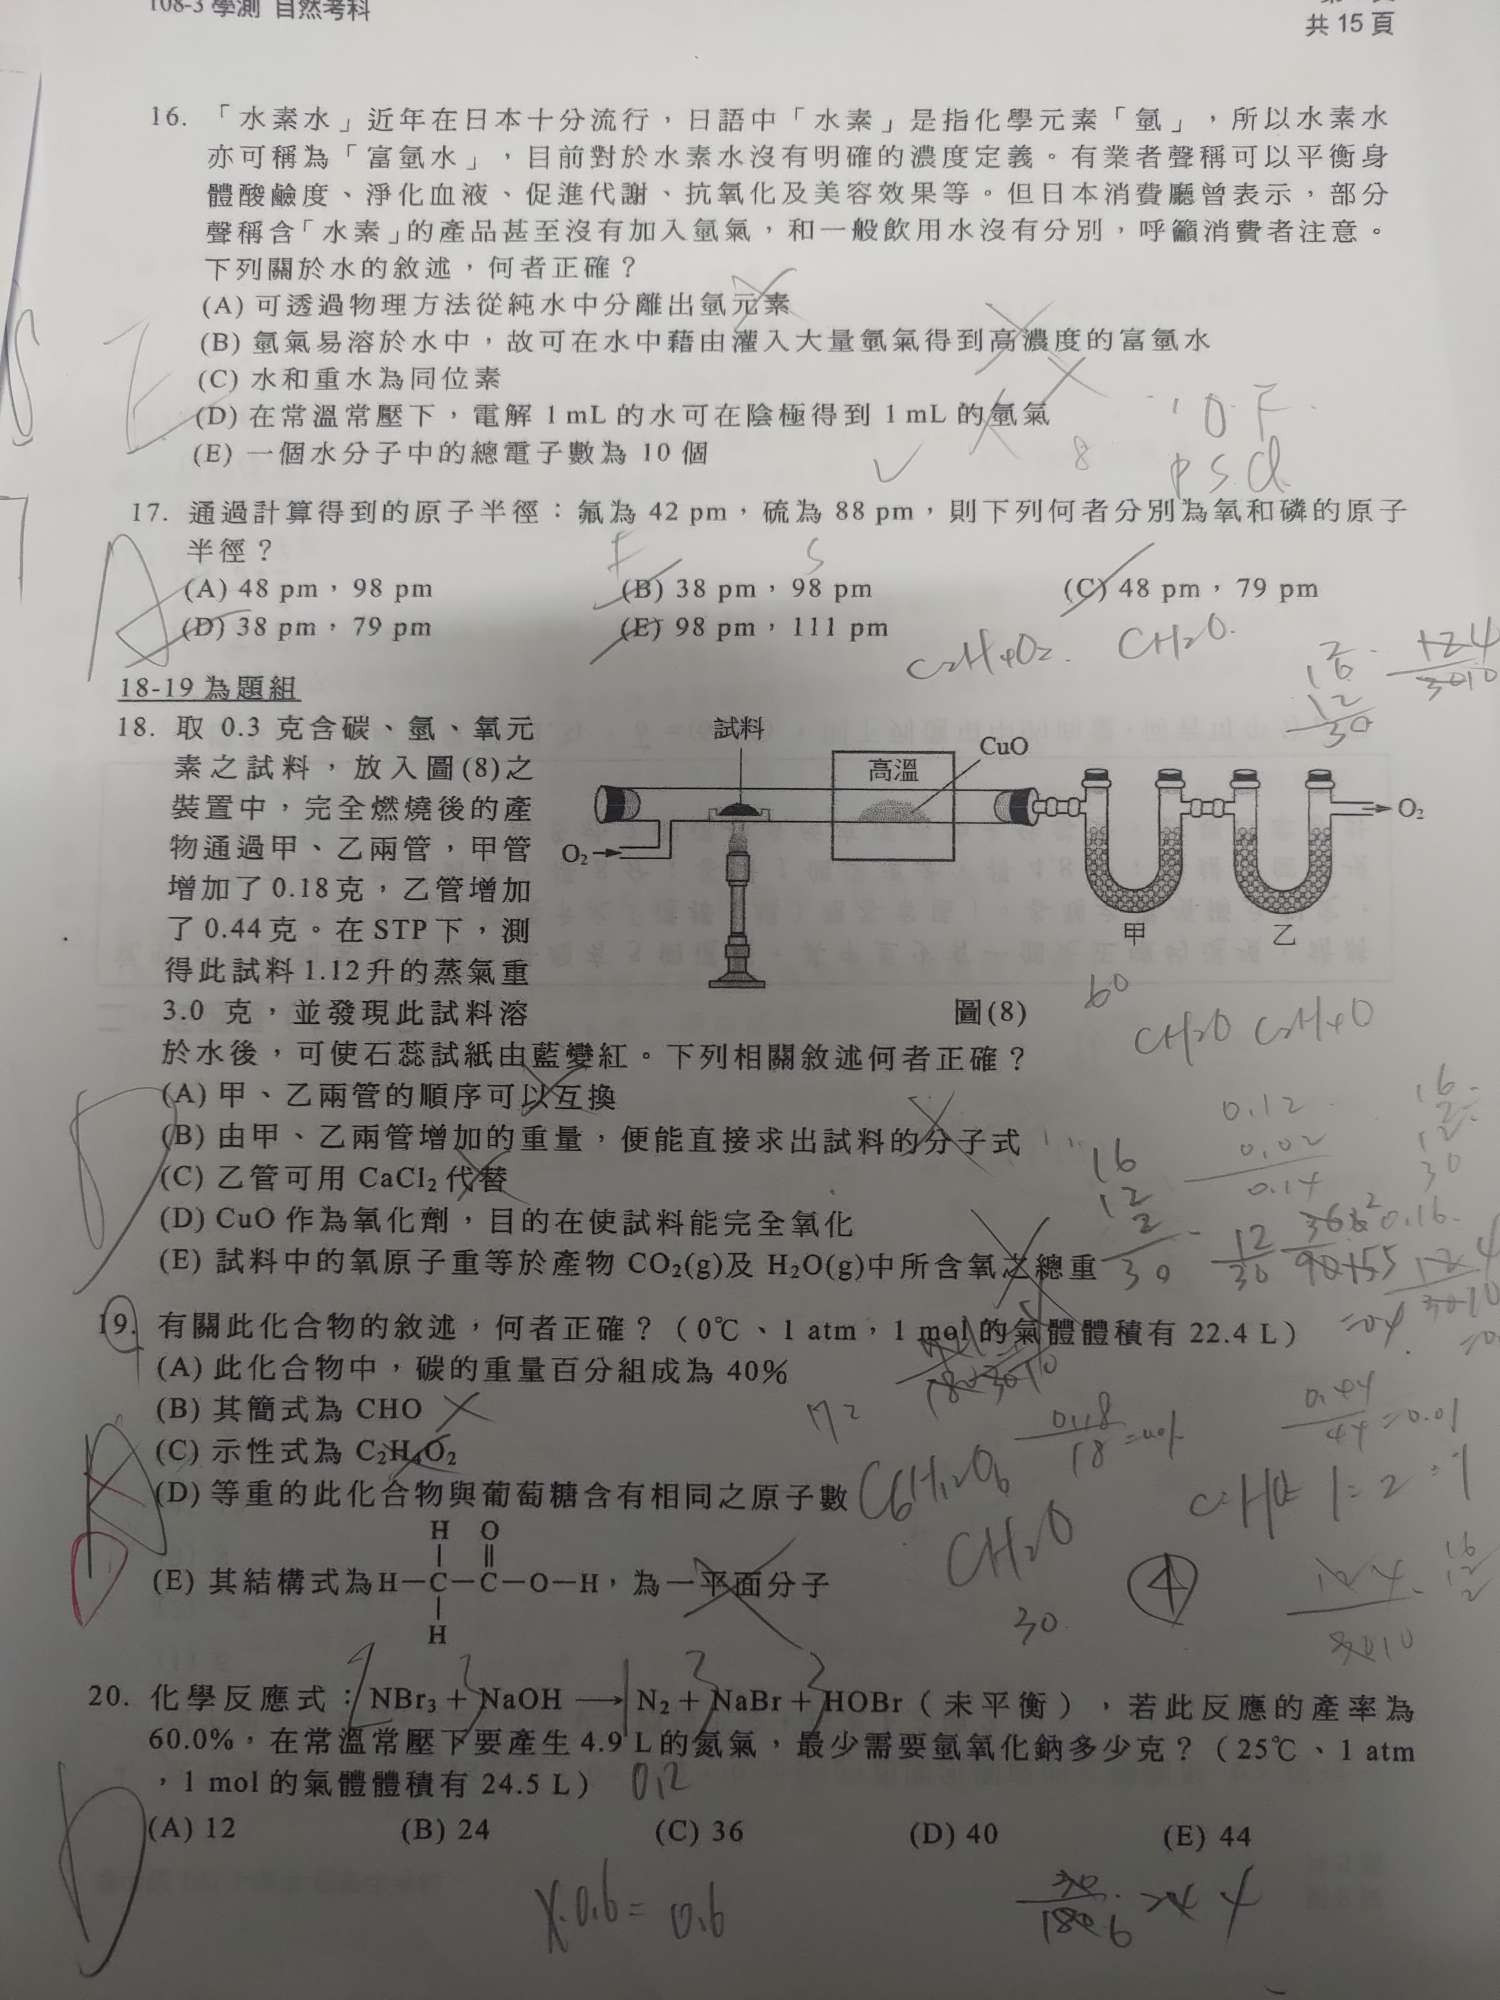 108-3 學測 自然考科
共 15 頁
16. 「水素水」近年在日本十分流行，日語中「水素」是指化學元素「氫」，所以水素水
亦可稱為「富氫水」，目前對於水素水沒有明確的濃度定義。有業者聲稱可以平衡身
體酸鹼度、淨化血液、促進代謝、抗氧化及美容效果等。但日本消費廳曾表示，部分
聲稱含「水素」的產品甚至沒有加入氫氣，和一般飲用水沒有分別，呼籲消費者注意。
下列關於水的敘述，何者正確？
(A) 可透過物理方法從純水中分離出氫元素
(B) 氫氣易溶於水中，故可在水中藉由灌入大量氫氣得到高濃度的富氫水
(C) 水和重水為同位素
(D) 在常溫常壓下，電解 1 mL 的水可在陰極得到 1 mL 的氫氣
(E) 一個水分子中的總電子數為 10 個
E
8
O F
P S Cl
17. 通過計算得到的原子半徑：氟為 42 pm，硫為 88 pm，則下列何者分別為氧和磷的原子
半徑？
F S
(A) 48 pm，98 pm (B) 38 pm，98 pm (C) 48 pm，79 pm
(D) 38 pm，79 pm (E) 98 pm，111 pm
A
C2H4O2. CH2O.
18-19 為題組
18. 取 0.3 克含碳、氫、氧元
素之試料，放入圖(8)之
裝置中，完全燃燒後的產
物通過甲、乙兩管，甲管
增加了 0.18 克，乙管增加
了 0.44 克。在 STP 下，測
得此試料 1.12 升的蒸氣重
3.0 克，並發現此試料溶
於水後，可使石蕊試紙由藍變紅。下列相關敘述何者正確？
試料
高溫
CuO
O2
O2
甲
乙
圖(8)
60
CH2O C2H4O
(A) 甲、乙兩管的順序可以互換
(B) 由甲、乙兩管增加的重量，便能直接求出試料的分子式
(C) 乙管可用 CaCl2 代替
(D) CuO 作為氧化劑，目的在使試料能完全氧化
(E) 試料中的氧原子重等於產物 CO2(g)及 H2O(g)中所含氧之總重
D
0.12
0.02
0.14
16
12
2
30
19. 有關此化合物的敘述，何者正確？（0℃、1 atm，1 mol 的氣體體積有 22.4 L）
(A) 此化合物中，碳的重量百分組成為 40%
(B) 其簡式為 CHO
(C) 示性式為 C2H4O2
(D) 等重的此化合物與葡萄糖含有相同之原子數
H O
(E) 其結構式為 H－C－C－O－H，為一平面分子
H
D
C6H12O6
CH2O
30
4
20. 化學反應式：NBr3 + NaOH ⟶ N2 + NaBr + HOBr（未平衡），若此反應的產率為
60.0%，在常溫常壓下要產生 4.9 L 的氮氣，最少需要氫氧化鈉多少克？（25℃、1 atm
，1 mol 的氣體體積有 24.5 L）
0.2
(A) 12 (B) 24 (C) 36 (D) 40 (E) 44
D
X·0.6 = 0.6